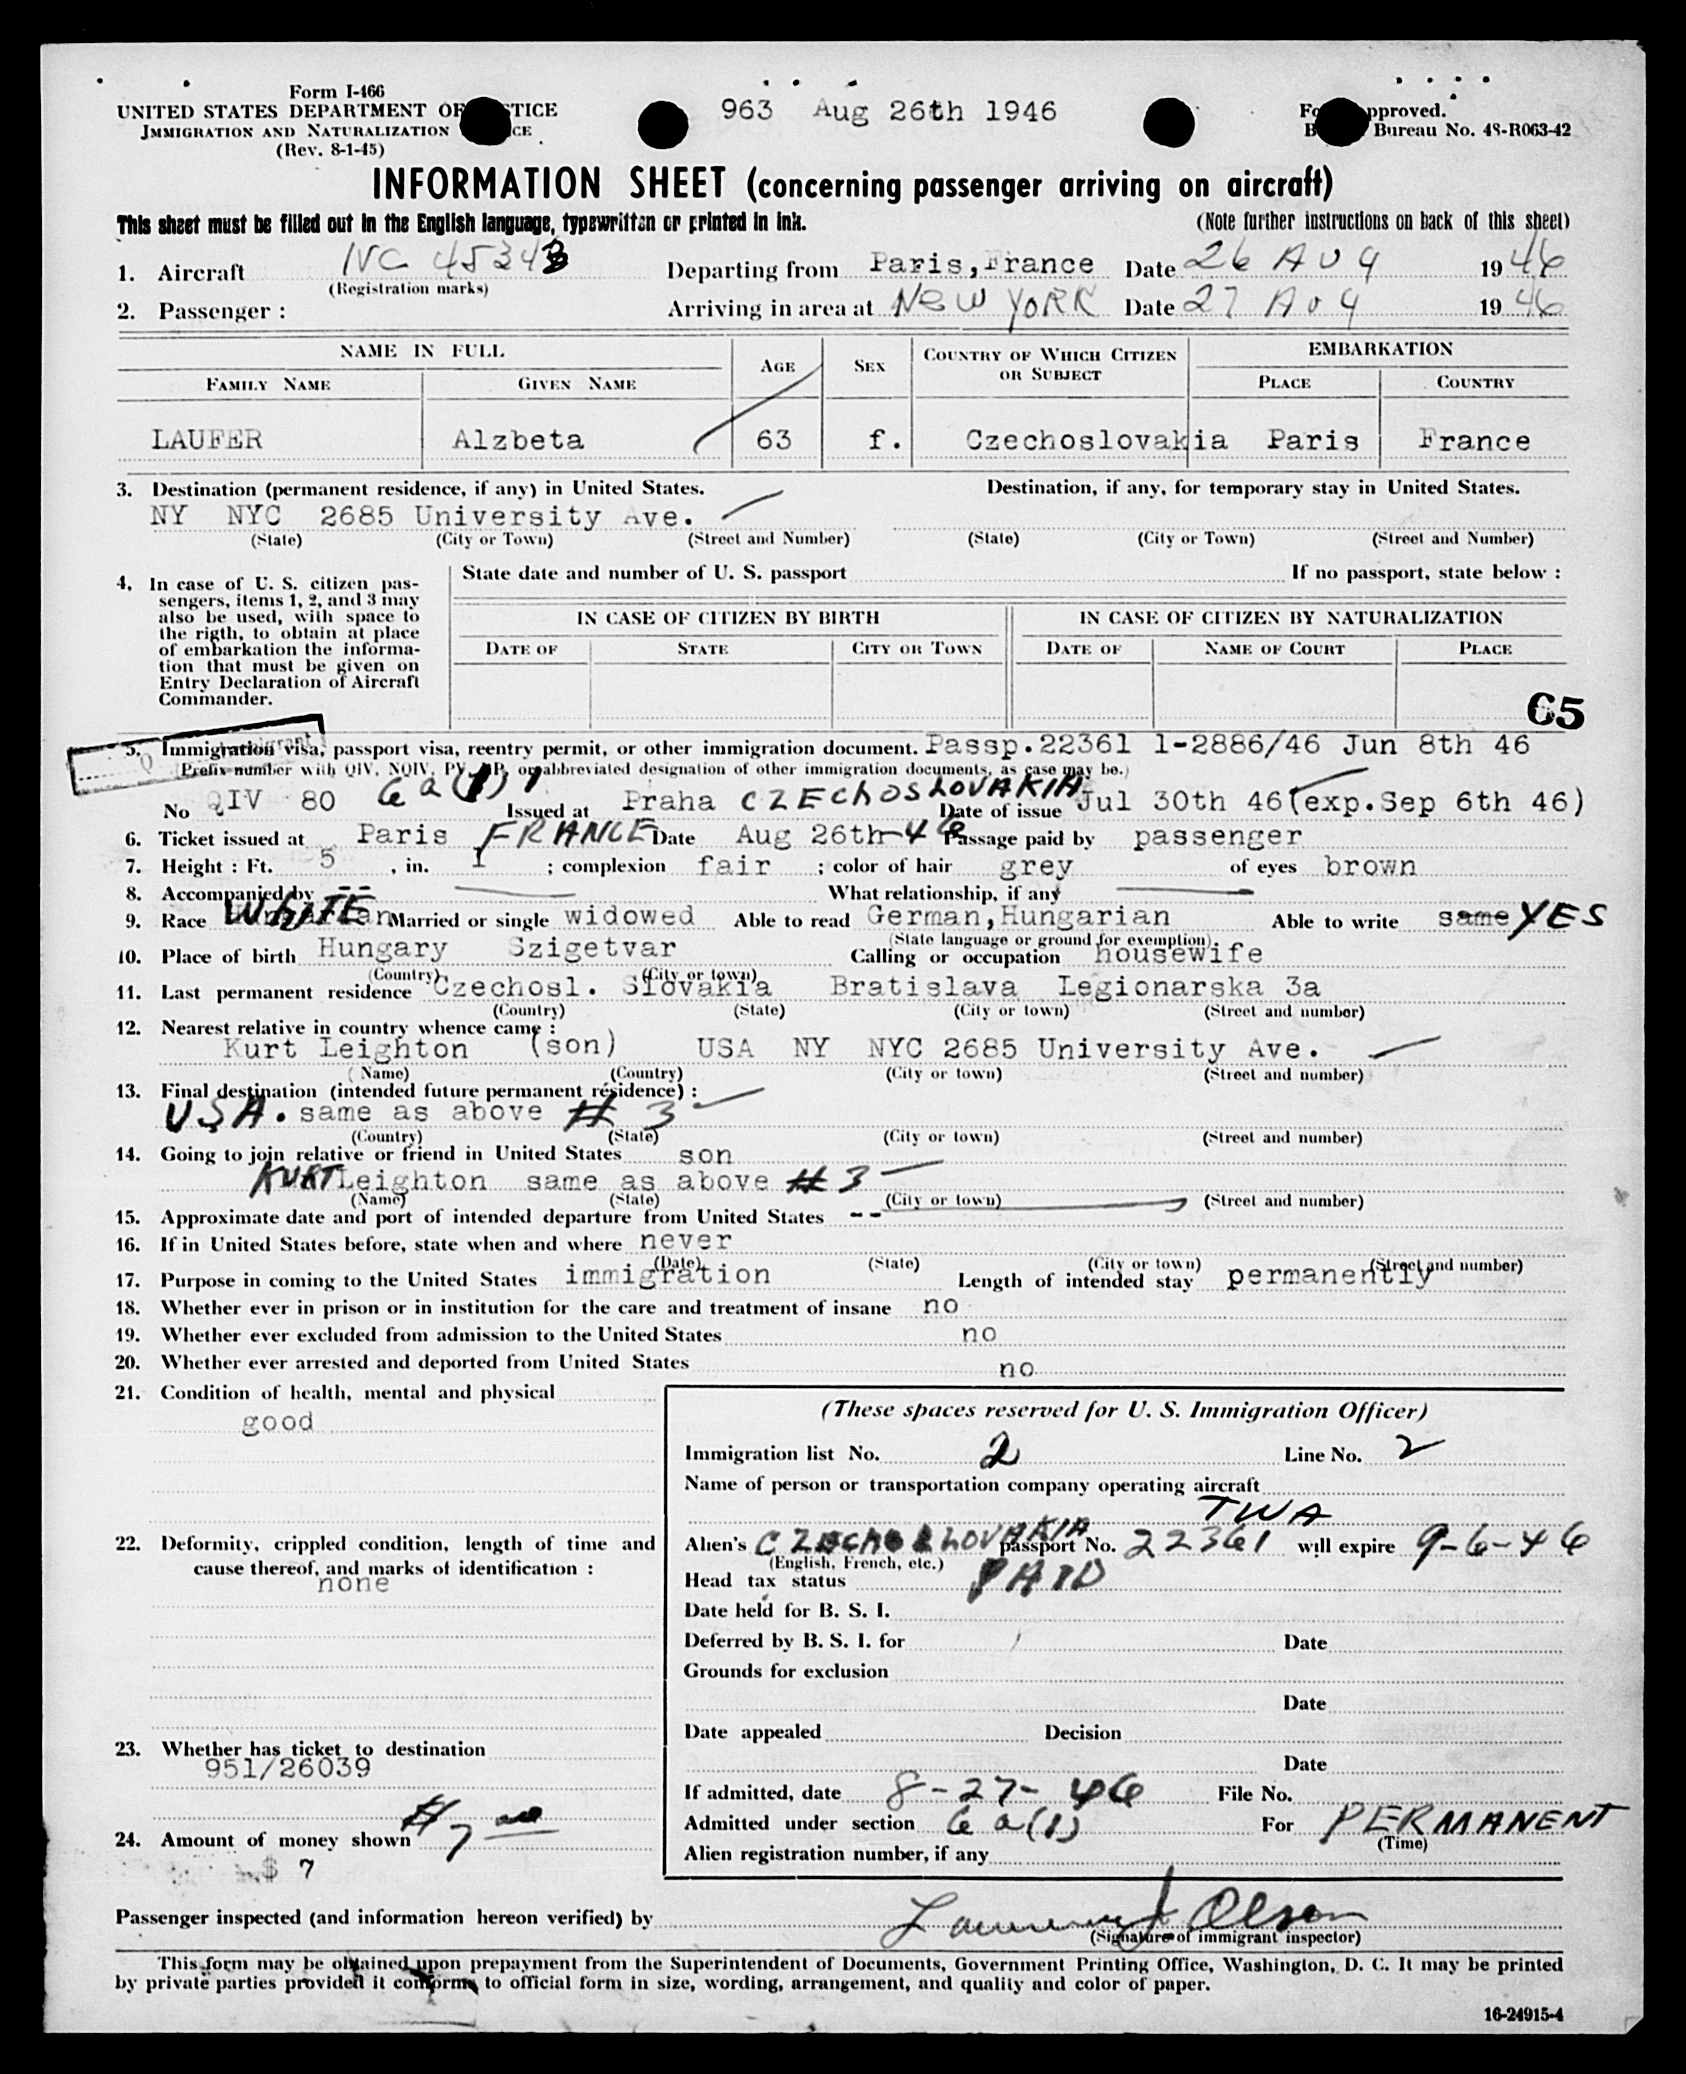 Form I-466
UNITED STATES DEPARTMENT OF JUSTICE
IMMIGRATION AND NATURALIZATION SERVICE
(Rev. 8-1-45)
963 Aug 26th 1946
Form approved.
Bureau No. 43-R063-42
INFORMATION SHEET (concerning passenger arriving on aircraft)
This sheet must be filled out in the English language, typewritten or printed in ink.
(Note further instructions on back of this sheet)
1. Aircraft NC 45343 Departing from Paris, France Date 26 AUG 1946
(Registration marks)
2. Passenger : Arriving in area at NEW YORK Date 27 AUG 1946
NAME IN FULL AGE SEX COUNTRY OF WHICH CITIZEN OR SUBJECT EMBARKATION
FAMILY NAME GIVEN NAME PLACE COUNTRY
LAUFER Alzbeta 63 f. Czechoslovakia Paris France
3. Destination (permanent residence, if any) in United States. Destination, if any, for temporary stay in United States.
NY NYC 2685 University Ave.
(State) (City or Town) (Street and Number) (State) (City or Town) (Street and Number)
4. In case of U. S. citizen pas-
sengers, items 1, 2, and 3 may
also be used, with space to
the rigth, to obtain at place
of embarkation the informa-
tion that must be given on
Entry Declaration of Aircraft
Commander.
State date and number of U. S. passport If no passport, state below :
IN CASE OF CITIZEN BY BIRTH IN CASE OF CITIZEN BY NATURALIZATION
DATE OF STATE CITY OR TOWN DATE OF NAME OF COURT PLACE
65
5. Immigration visa, passport visa, reentry permit, or other immigration document. Passp.22361 1-2886/46 Jun 8th 46
(Prefix number with QIV, NQIV, PV, NP, or abbreviated designation of other immigration documents, as case may be.)
No QIV 80 6a(1) Issued at Praha CZECHOSLOVAKIA Date of issue Jul 30th 46(exp.Sep 6th 46)
6. Ticket issued at Paris FRANCE Date Aug 26th-46 Passage paid by passenger
7. Height : Ft. 5 , in. 1 ; complexion fair ; color of hair grey of eyes brown
8. Accompanied by -- What relationship, if any
9. Race WHITE Married or single widowed Able to read German,Hungarian Able to write same YES
(State language or ground for exemption).
10. Place of birth Hungary Szigetvar Calling or occupation housewife
(Country) (City or town)
11. Last permanent residence Czechosl. Slovakia Bratislava Legionarska 3a
(Country) (State) (City or town) (Street and number)
12. Nearest relative in country whence came :
Kurt Leighton (son) USA NY NYC 2685 University Ave.
(Name) (Country) (City or town) (Street and number)
13. Final destination (intended future permanent residence) :
USA. same as above # 3
(Country) (State) (City or town) (Street and number)
14. Going to join relative or friend in United States son
KURT Leighton same as above # 3
(Name) (State) (City or town) (Street and number)
15. Approximate date and port of intended departure from United States --
16. If in United States before, state when and where never
(Date) (State) (City or town) (Street and number)
17. Purpose in coming to the United States immigration Length of intended stay permanently
18. Whether ever in prison or in institution for the care and treatment of insane no
19. Whether ever excluded from admission to the United States no
20. Whether ever arrested and deported from United States no
21. Condition of health, mental and physical
good
22. Deformity, crippled condition, length of time and
cause thereof, and marks of identification :
none
23. Whether has ticket to destination
951/26039
24. Amount of money shown # 7 00
$ 7
(These spaces reserved for U. S. Immigration Officer)
Immigration list No. 2 Line No. 2
Name of person or transportation company operating aircraft
TWA
Alien's CZECHOSLOVAKIA passport No. 22361 will expire 9-6-46
(English, French, etc.)
Head tax status PAID
Date held for B. S. I.
Deferred by B. S. I. for Date
Grounds for exclusion
Date
Date appealed Decision
Date
If admitted, date 8-27-46 File No.
Admitted under section 6a(1) For PERMANENT
(Time)
Alien registration number, if any
Passenger inspected (and information hereon verified) by Lawrence J. Olson
(Signature of immigrant inspector)
This form may be obtained upon prepayment from the Superintendent of Documents, Government Printing Office, Washington, D. C. It may be printed
by private parties provided it conforms to official form in size, wording, arrangement, and quality and color of paper.
16-24915-4